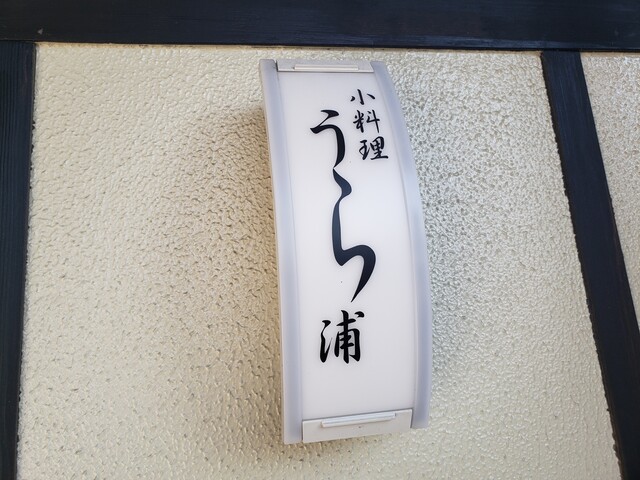 小料理
うらら浦